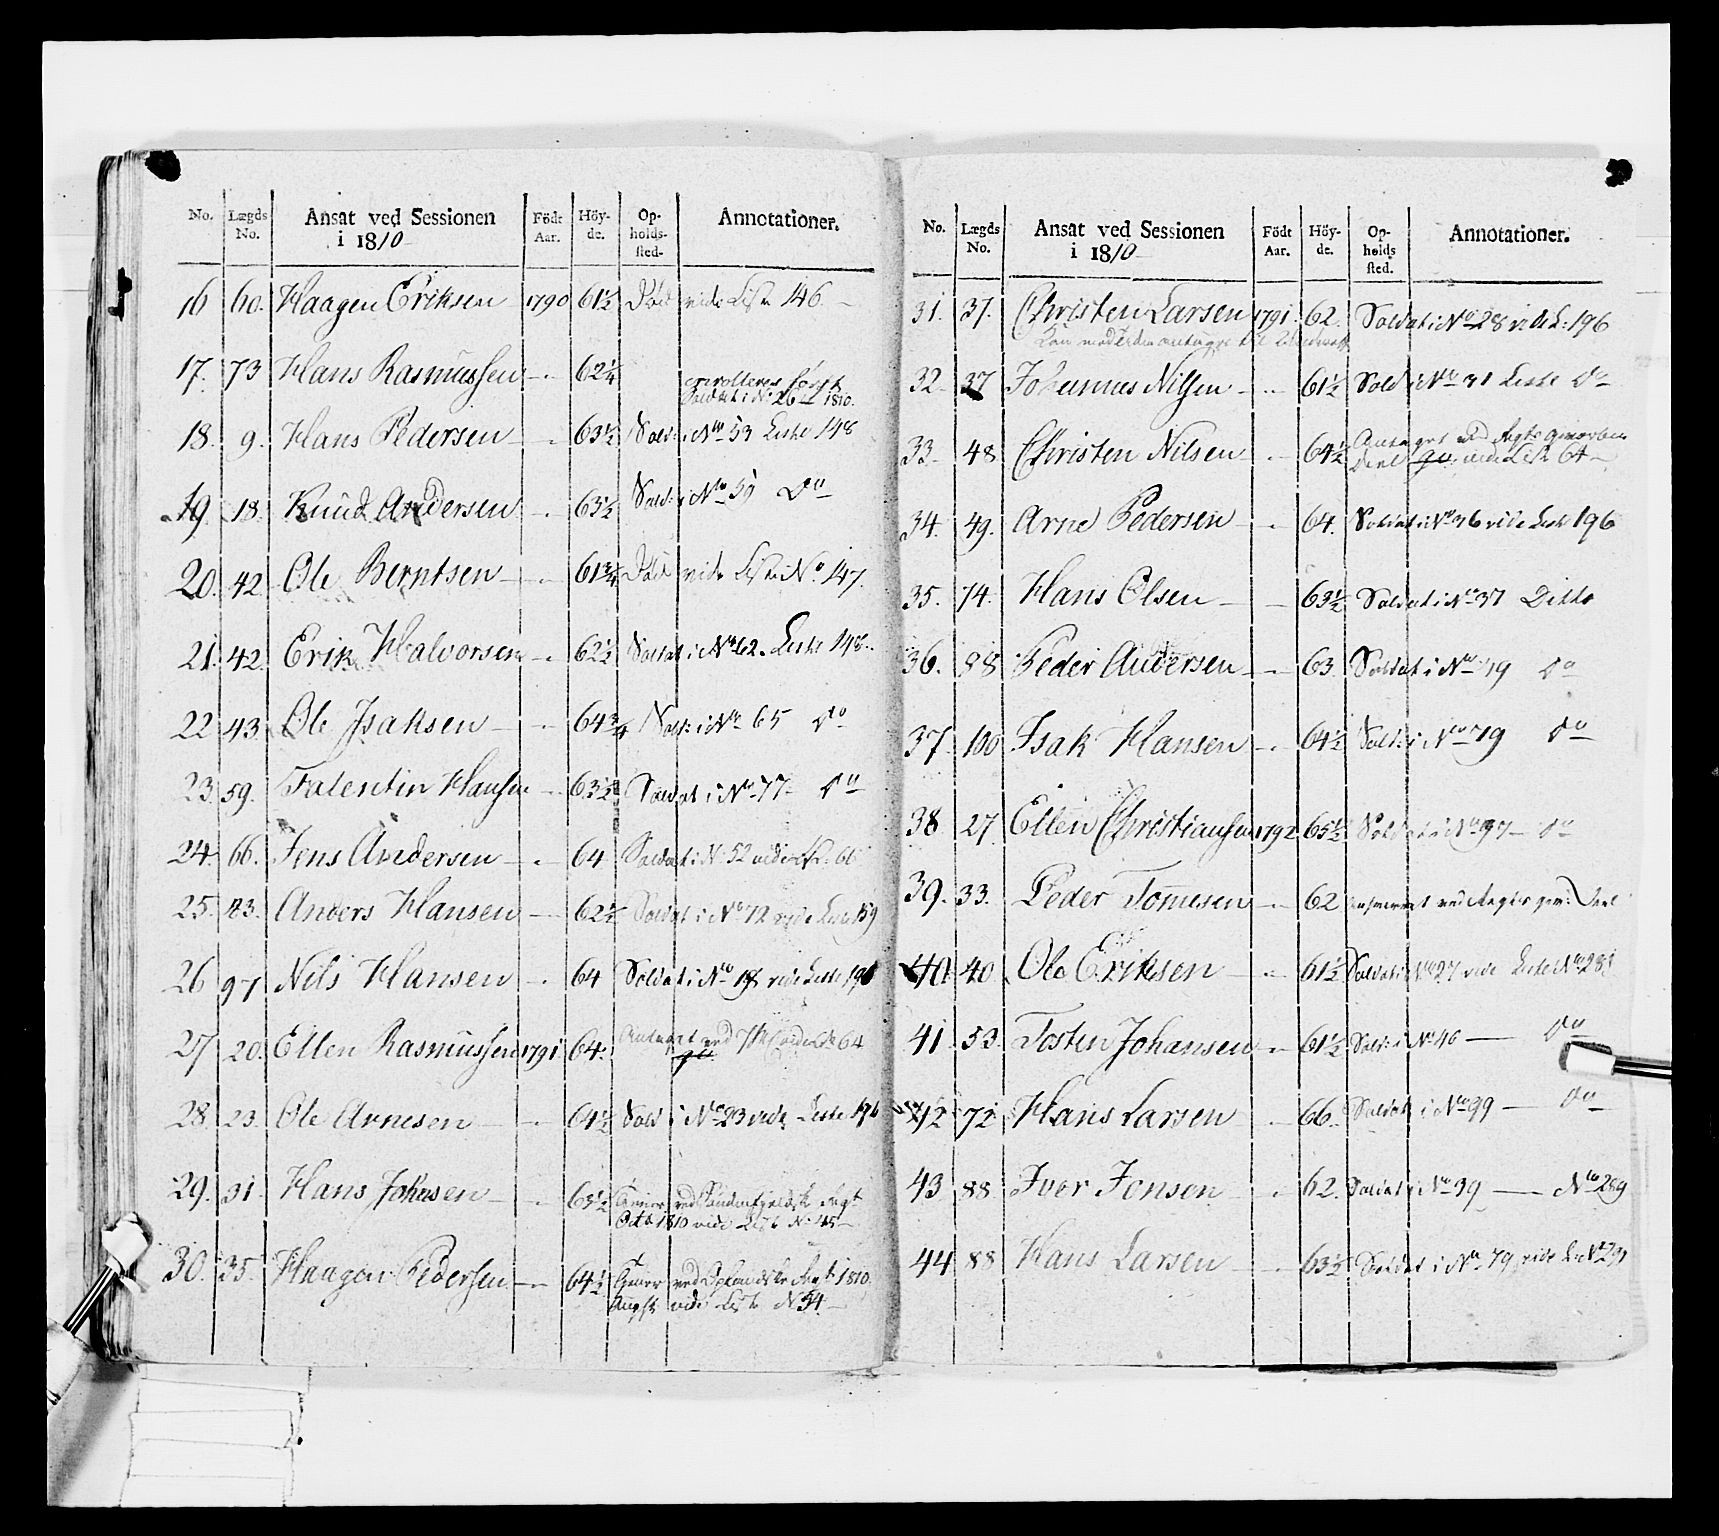 No. Lægds No. Ansat ved Sessionen i 1810 Födt Aar. Höyde. Opholds-sted. Annotationer.
16 60. Haagen Eriksen 1790 61½ Död vide Liste 146.
17. 73 Hans Rasmussen 62¼
Soldat i No 26 1810.
18. 9. Hans Pedersen 63½ Sold: i No 53 Liste 148
19. 18. Knud Andersen 63½ Sold: i No 59 Do
20. 42 Ole Berntsen 61¾ Död vide Liste No 147.
21. 42. Erik Halvorsen 62½ Soldat i No 62. Liste 148.
22 43. Ole Isaksen 64¾ Sold: i No 65 Do
23. 59. Falentin Hansen 63½ Soldat i No 77 Do
24. 66. Jens Andersen 64 Soldat i No 52 vide 66
25. 83. Anders Hansen 62½ Soldat i No 72 vide Liste 159
26 97 Nils Hansen 64 Soldat i No 18 vide Liste 196
27 20. Ellen Rasmussen 1791 64. Antaget ved vide 64
28. 23. Ole Arnesen 64½ Sold i No 23 vide Liste 196
29. 31. Hans Johnsen 63½ ved Söndenfieldske Regt
Octb 1810 vide Liste No 45
30. 35. Haagen Pedersen 64½ ved Oplandske Regt 1810.
vide Liste No 54
No. Lægds No. Ansat ved Sessionen i 1810 Födt Aar. Höyde. Opholds sted. Annotationer.
31. 37. Christen Larsen 1791. 62. Soldat i No 28 vide L: 196
32. 37 Johannes Nilsen 61½ Sold i No 31 Liste Do
33. 48 Christen Nilsen 64½ Antaget ved Regts
vide Liste 64
34. 49. Arne Pedersen 64. Soldat i No 36 vide Liste 196
35. 74. Hans Olsen 63½ Soldat i No 37 Ditto
36. 88 Peder Andersen 63 Soldat i No 79 Do
37. 100 Isak Hansen 64½ Sold: i No 79 Do
38 27 Ellen Christiansen 1792 65½ Soldat i No 97 Do
39. 33. Peder Tomesen 62 ved Regts gev:
40 40 Ole Eriksen 61½ Soldat i No 27 vide Liste No 281
41 53. Tosten Johansen 61½ Sold: i No 46 Do
42 72 Hans Larsen 66. Soldat i No 99 Do
43 88 Iver Jensen 62. Soldat i No 39 No 289
44 88 Hans Larsen 63½ Soldat i No 79 vide L: No 291